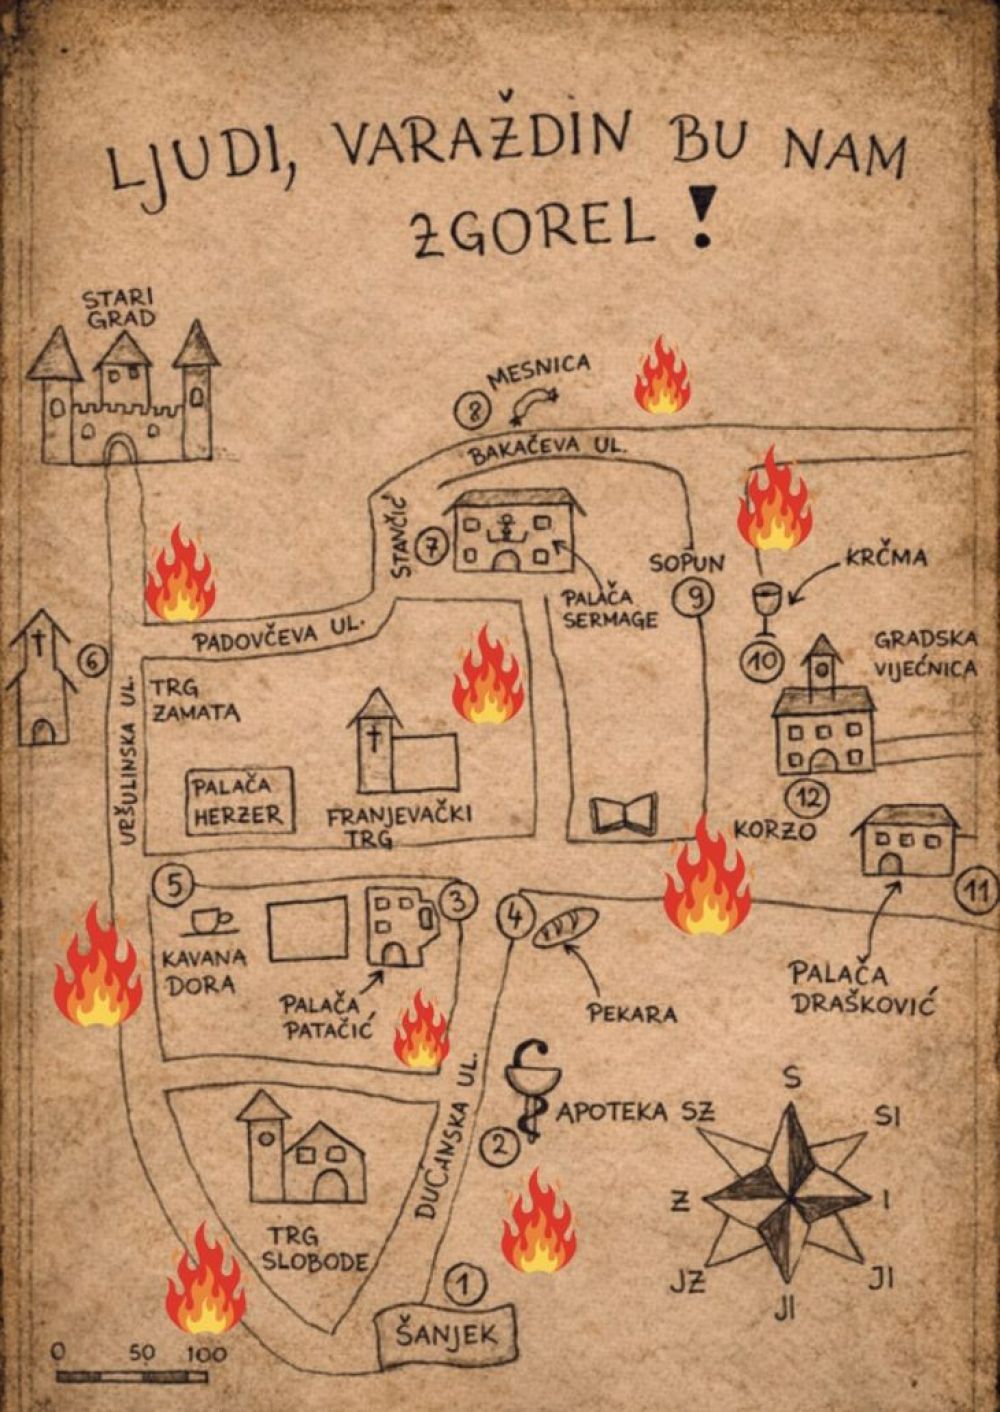 LJUDI, VARAŽDIN BU NAM
ZGOREL!
STARI
GRAD
MESNICA
8
BAKAČEVA UL.
STANČIĆ
7
PALAČA
SERMAGE
SOPUN
9
KRČMA
10
GRADSKA
VIJEĆNICA
12
PADOVČEVA UL.
6
TRG
ZAMATA
URŠULINSKA UL.
PALAČA
HERZER
FRANJEVAČKI
TRG
KORZO
11
5
3
4
KAVANA
DORA
PALAČA
PATAČIĆ
PEKARA
PALAČA
DRAŠKOVIĆ
APOTEKA
2
DUĆANSKA UL.
TRG
SLOBODE
1
ŠANJEK
S
SZ
SI
Z
I
JZ
JI
JI
0 50 100